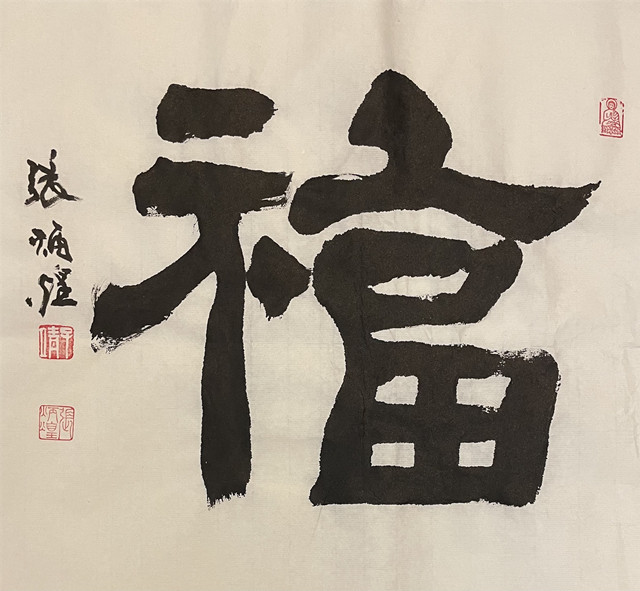 福
張炳煌
張炳煌